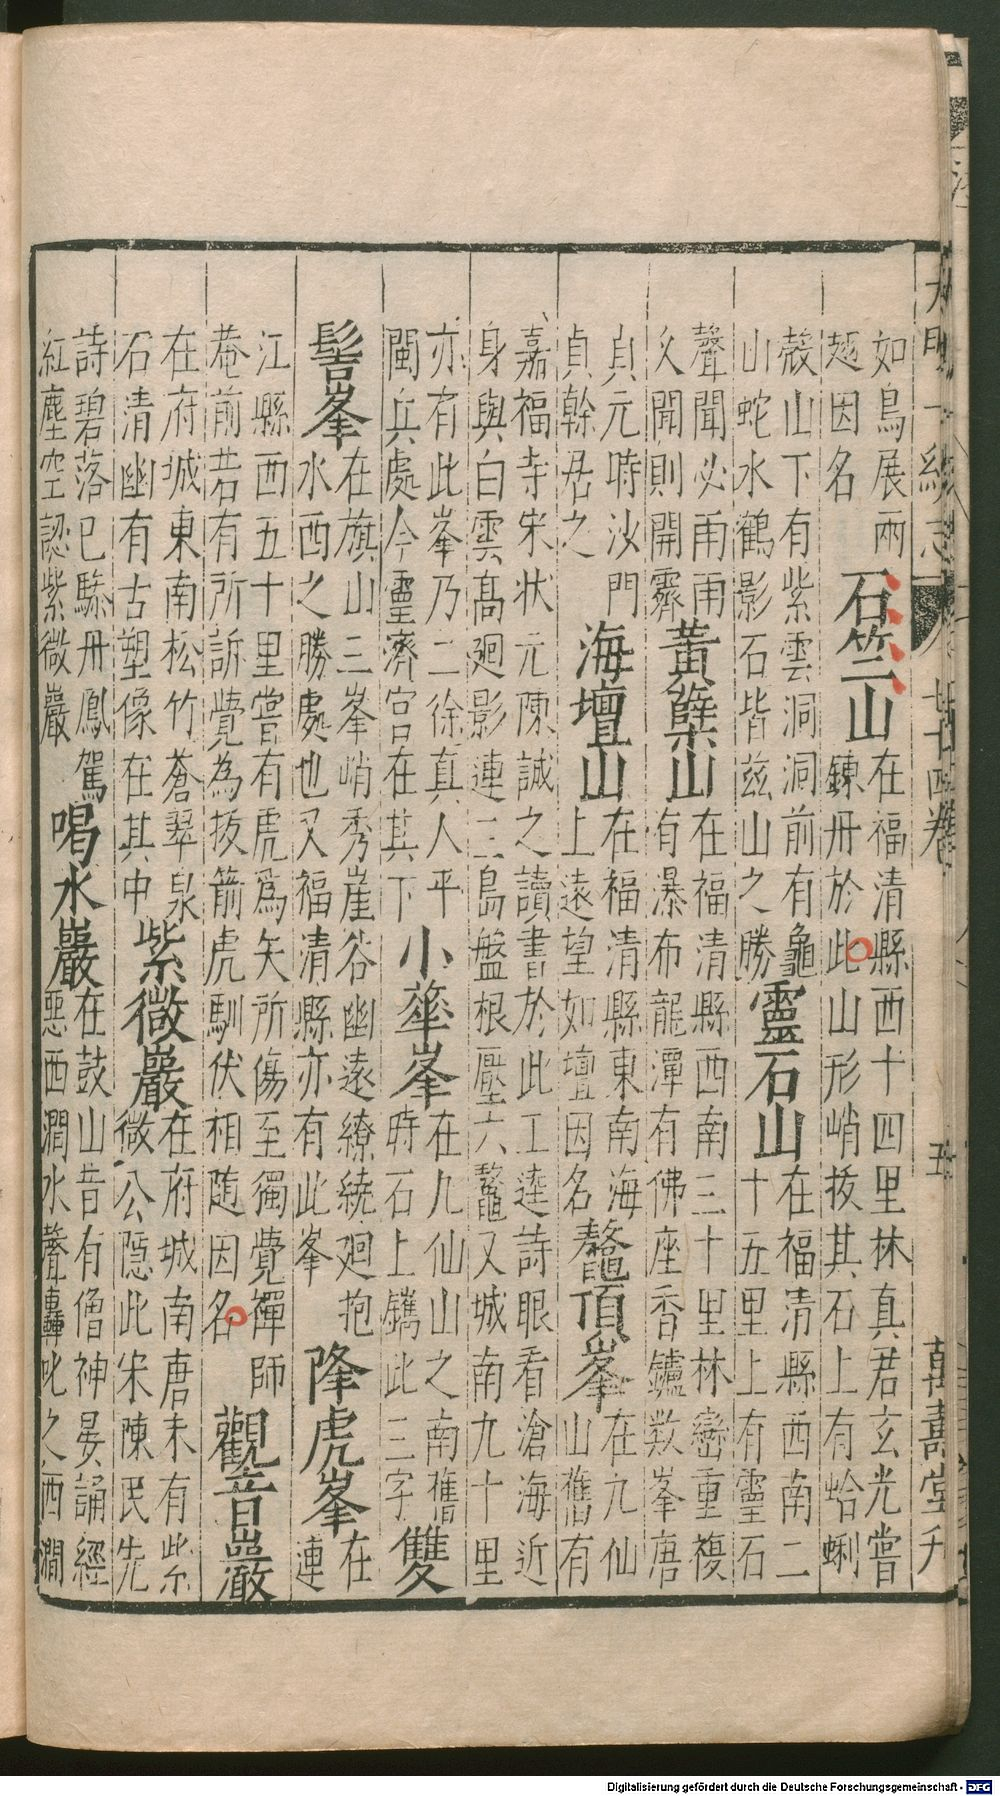 如鳥展兩
翅因名
石竺山
在福清縣西十四里林真君玄光嘗
鍊丹於此山形峭拔其石上有蛤蜊
殼山下有紫雲洞洞前有龜
山蛇水鶴影石皆茲山之勝
靈石山
在福清縣西南二
十五里上有靈石
聲聞必雨雨
乆聞則開霽
黃蘗山
在福清縣西南三十里林巒重複
有瀑布龍潭有佛座香鑪數峯唐
貞元時沙門
貞幹居之
海壇山
在福清縣東南海
上遠望如壇因名
鼇頂峯
在九仙
山舊有
嘉福寺宋状元陳誠之讀書於此工逵詩眼看滄海近
身與白雲髙迴影連三島盤根壓六鼇又城南九十里
亦有此峯乃二徐真人平
閩兵處今靈濟宮在其下
小華峯
在九仙山之南舊
時石上鐫此三字
雙
髻峯
在旗山三峯峭秀崖谷幽遠繚繞迴抱
水西之勝處也又福清縣亦有此峯
降虎峯
在
連
江縣西五十里嘗有虎爲矢所傷至獨覺禪師
菴前若有所訴覺為拔箭虎馴伏相随因名
觀音巖
在府城東南松竹蒼翠泉
石清幽有古塑像在其中
紫微巖
在府城南唐末有紫
微公隱此宋陳民先
詩碧落已驂丹鳳駕
紅塵空認紫微巖
喝水巖
在鼓山昔有僧神晏誦經
惡西澗水聲轟叱之西澗
大明一統志
廿四卷
五
萬壽堂刋
Digitalisierung gefördert durch die Deutsche Forschungsgemeinschaft - DFG